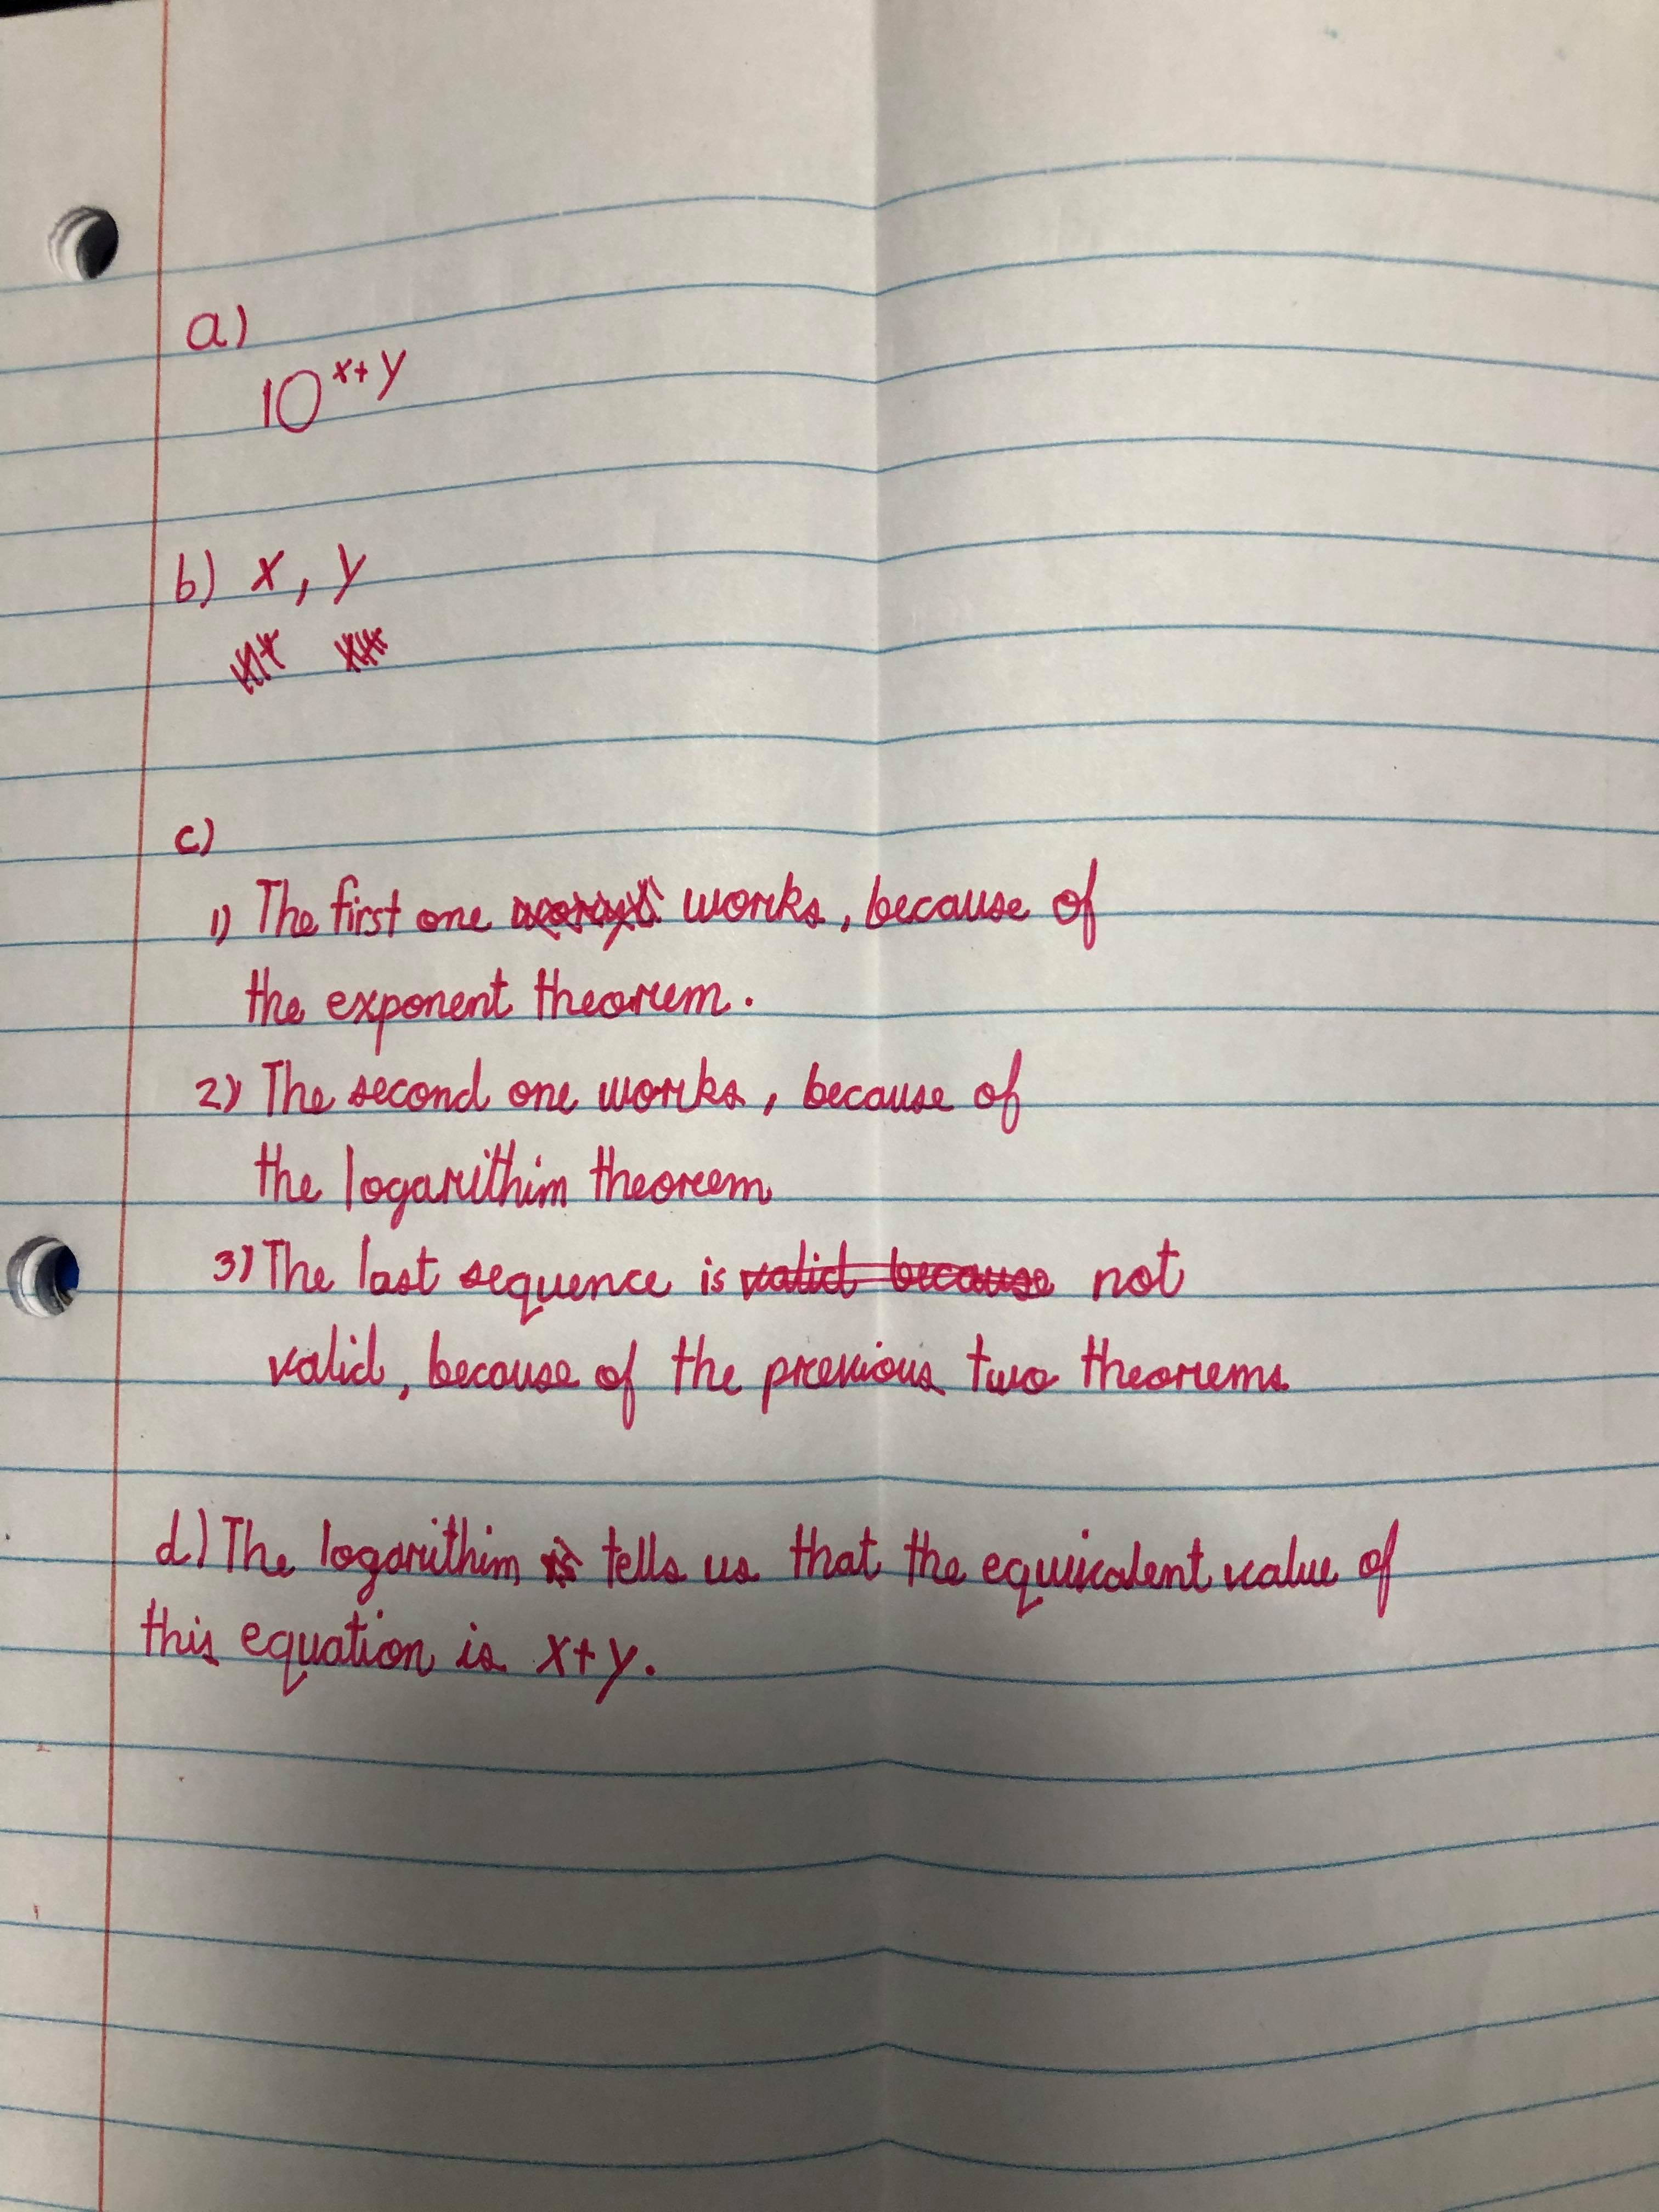 a)
10^x+y
b) x, y
c)
1) The first one works, because of
the exponent theorem.
2) The second one works, because of
the logarithim theorem
3) The last sequence is valid because not
valid, because of the previous two theorems.
d) The logarithim is tells us that the equivalent value of
this equation is x+y.